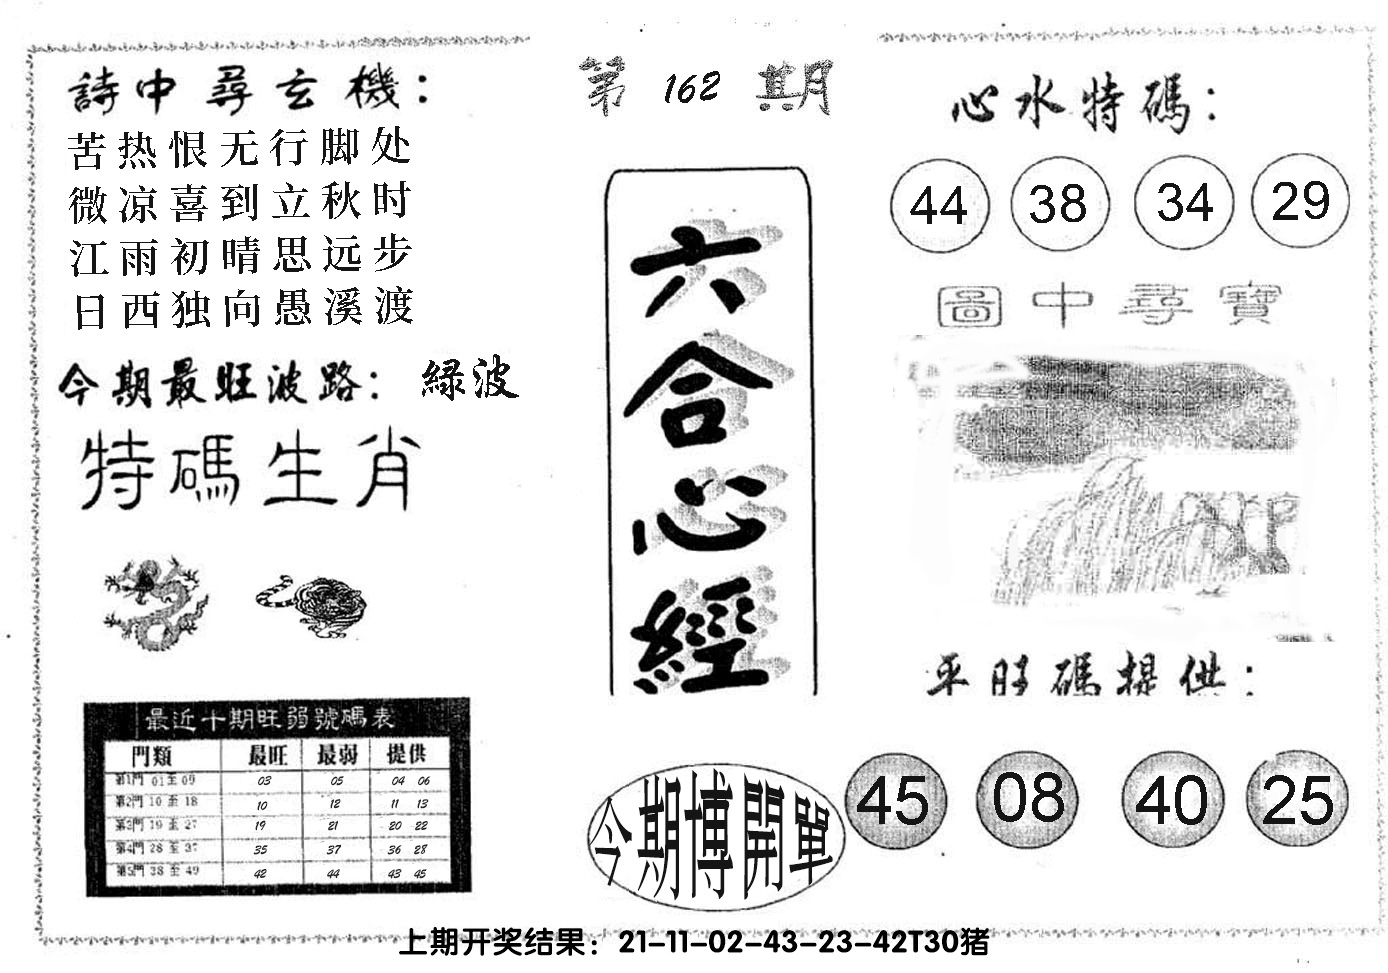 第 162 期
詩中尋玄機：
苦热恨无行脚处
微凉喜到立秋时
江雨初晴思远步
日西独向愚溪渡
今期最旺波路： 緑波
特碼生肖
最近十期旺弱號碼表
門類 最旺 最弱 提供
第1門 01 至 09 03 05 04 06
第2門 10 至 18 10 12 11 13
第3門 19 至 27 19 21 20 22
第4門 28 至 37 35 37 36 28
第5門 38 至 49 42 44 43 45
六合心經
今期博開單
心水特碼：
44 38 34 29
圖中尋寶
平旺碼提供：
45 08 40 25
上期开奖结果：21-11-02-43-23-42T30猪